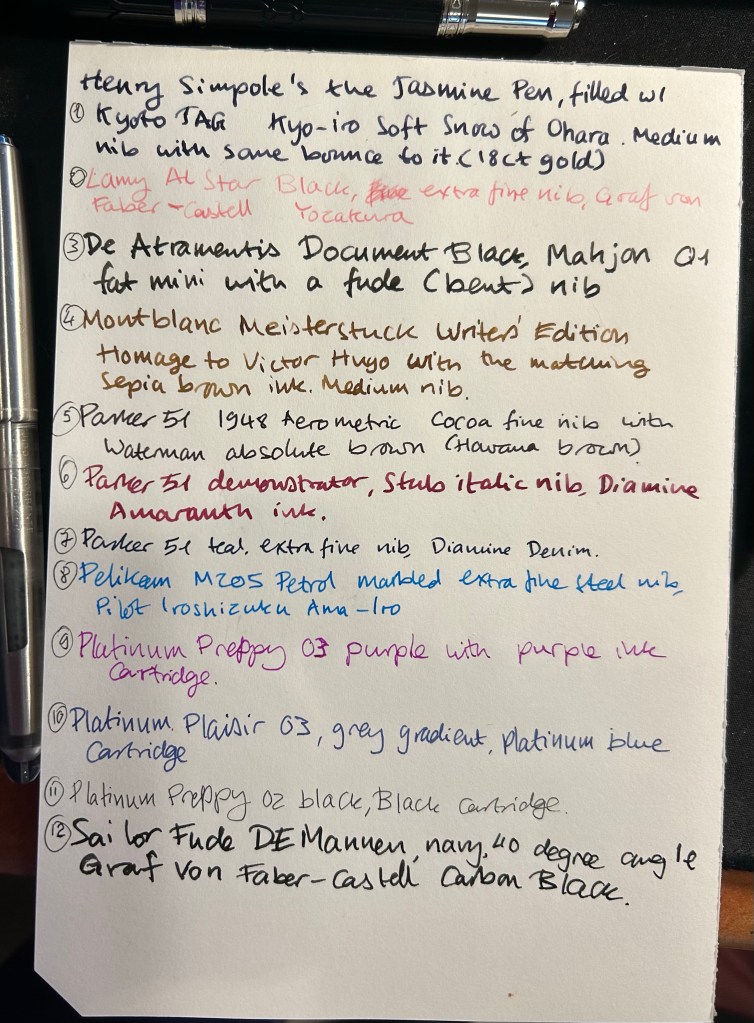 Henry Simpole's the Jasmine Pen, filled w/
① Kyoto TAG Kyo-iro Soft Snow of Ohara. Medium
nib with some bounce to it. (18ct gold)
② Lamy Al Star Black, extra fine nib, Graf von
Faber-Castell Yozakura
③ De Atramentis Document Black, Mahjon Q1
fat mini with a fude (bent) nib
④ Montblanc Meisterstuck Writers' Edition
Homage to Victor Hugo with the matching
Sepia brown ink. Medium nib.
⑤ Parker 51 1948 Aerometric Cocoa fine nib with
Waterman absolute brown (Havana brown)
⑥ Parker 51 demonstrator, Stub italic nib, Diamine
Amaranth ink.
⑦ Parker 51 teal, extra fine nib, Diamine Denim.
⑧ Pelikan M205 Petrol marbled extra fine steel nib,
Pilot Iroshizuku Ama-Iro
⑨ Platinum Preppy 03 purple with purple ink
Cartridge.
⑩ Platinum Plaisir 03, grey gradient, platinum blue
Cartridge
⑪ Platinum Preppy 02 black, Black Cartridge.
⑫ Sailor Fude DE Mannen, navy, 40 degree angle
Graf Von Faber-Castell Carbon Black.